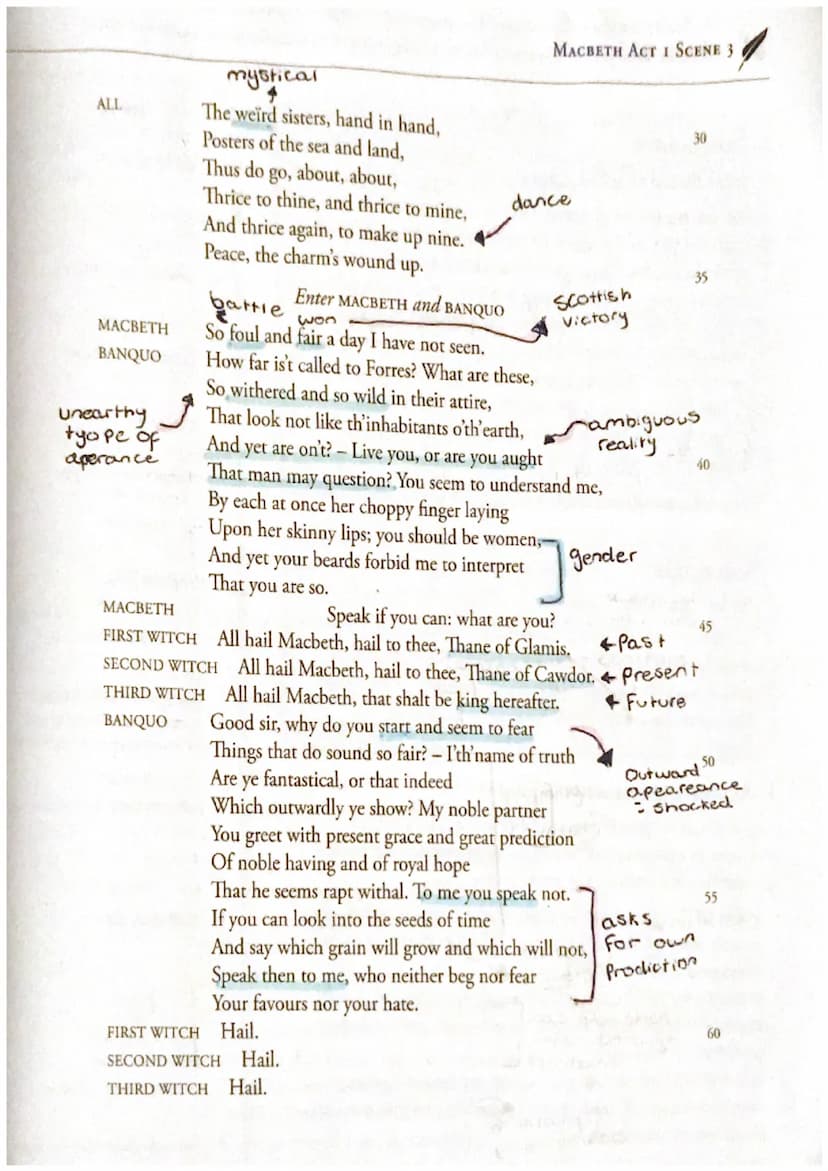 MACBETH ACT 1 SCENE 3
mystical
ALL The weïrd sisters, hand in hand,
30
Posters of the sea and land,
Thus do go, about, about,
Thrice to thine, and thrice to mine,
dance
And thrice again, to make up nine.
Peace, the charm's wound up.
35
Enter MACBETH and BANQUO
battle
won
scottish
victory
MACBETH So foul and fair a day I have not seen.
BANQUO How far is't called to Forres? What are these,
So withered and so wild in their attire,
unearthy
tyope of
aperance
That look not like th'inhabitants o'th'earth,
ambiguous
reality
And yet are on't? – Live you, or are you aught
40
That man may question? You seem to understand me,
By each at once her choppy finger laying
Upon her skinny lips; you should be women,
gender
And yet your beards forbid me to interpret
That you are so.
MACBETH Speak if you can: what are you?
45
FIRST WITCH All hail Macbeth, hail to thee, Thane of Glamis.
←Past
SECOND WITCH All hail Macbeth, hail to thee, Thane of Cawdor.
← Present
THIRD WITCH All hail Macbeth, that shalt be king hereafter.
← Future
BANQUO Good sir, why do you start and seem to fear
Things that do sound so fair? – I'th'name of truth
50
Outward
apeareance
= shocked
Are ye fantastical, or that indeed
Which outwardly ye show? My noble partner
You greet with present grace and great prediction
Of noble having and of royal hope
That he seems rapt withal. To me you speak not.
55
asks
for own
prodiction
If you can look into the seeds of time
And say which grain will grow and which will not,
Speak then to me, who neither beg nor fear
Your favours nor your hate.
FIRST WITCH Hail.
60
SECOND WITCH Hail.
THIRD WITCH Hail.